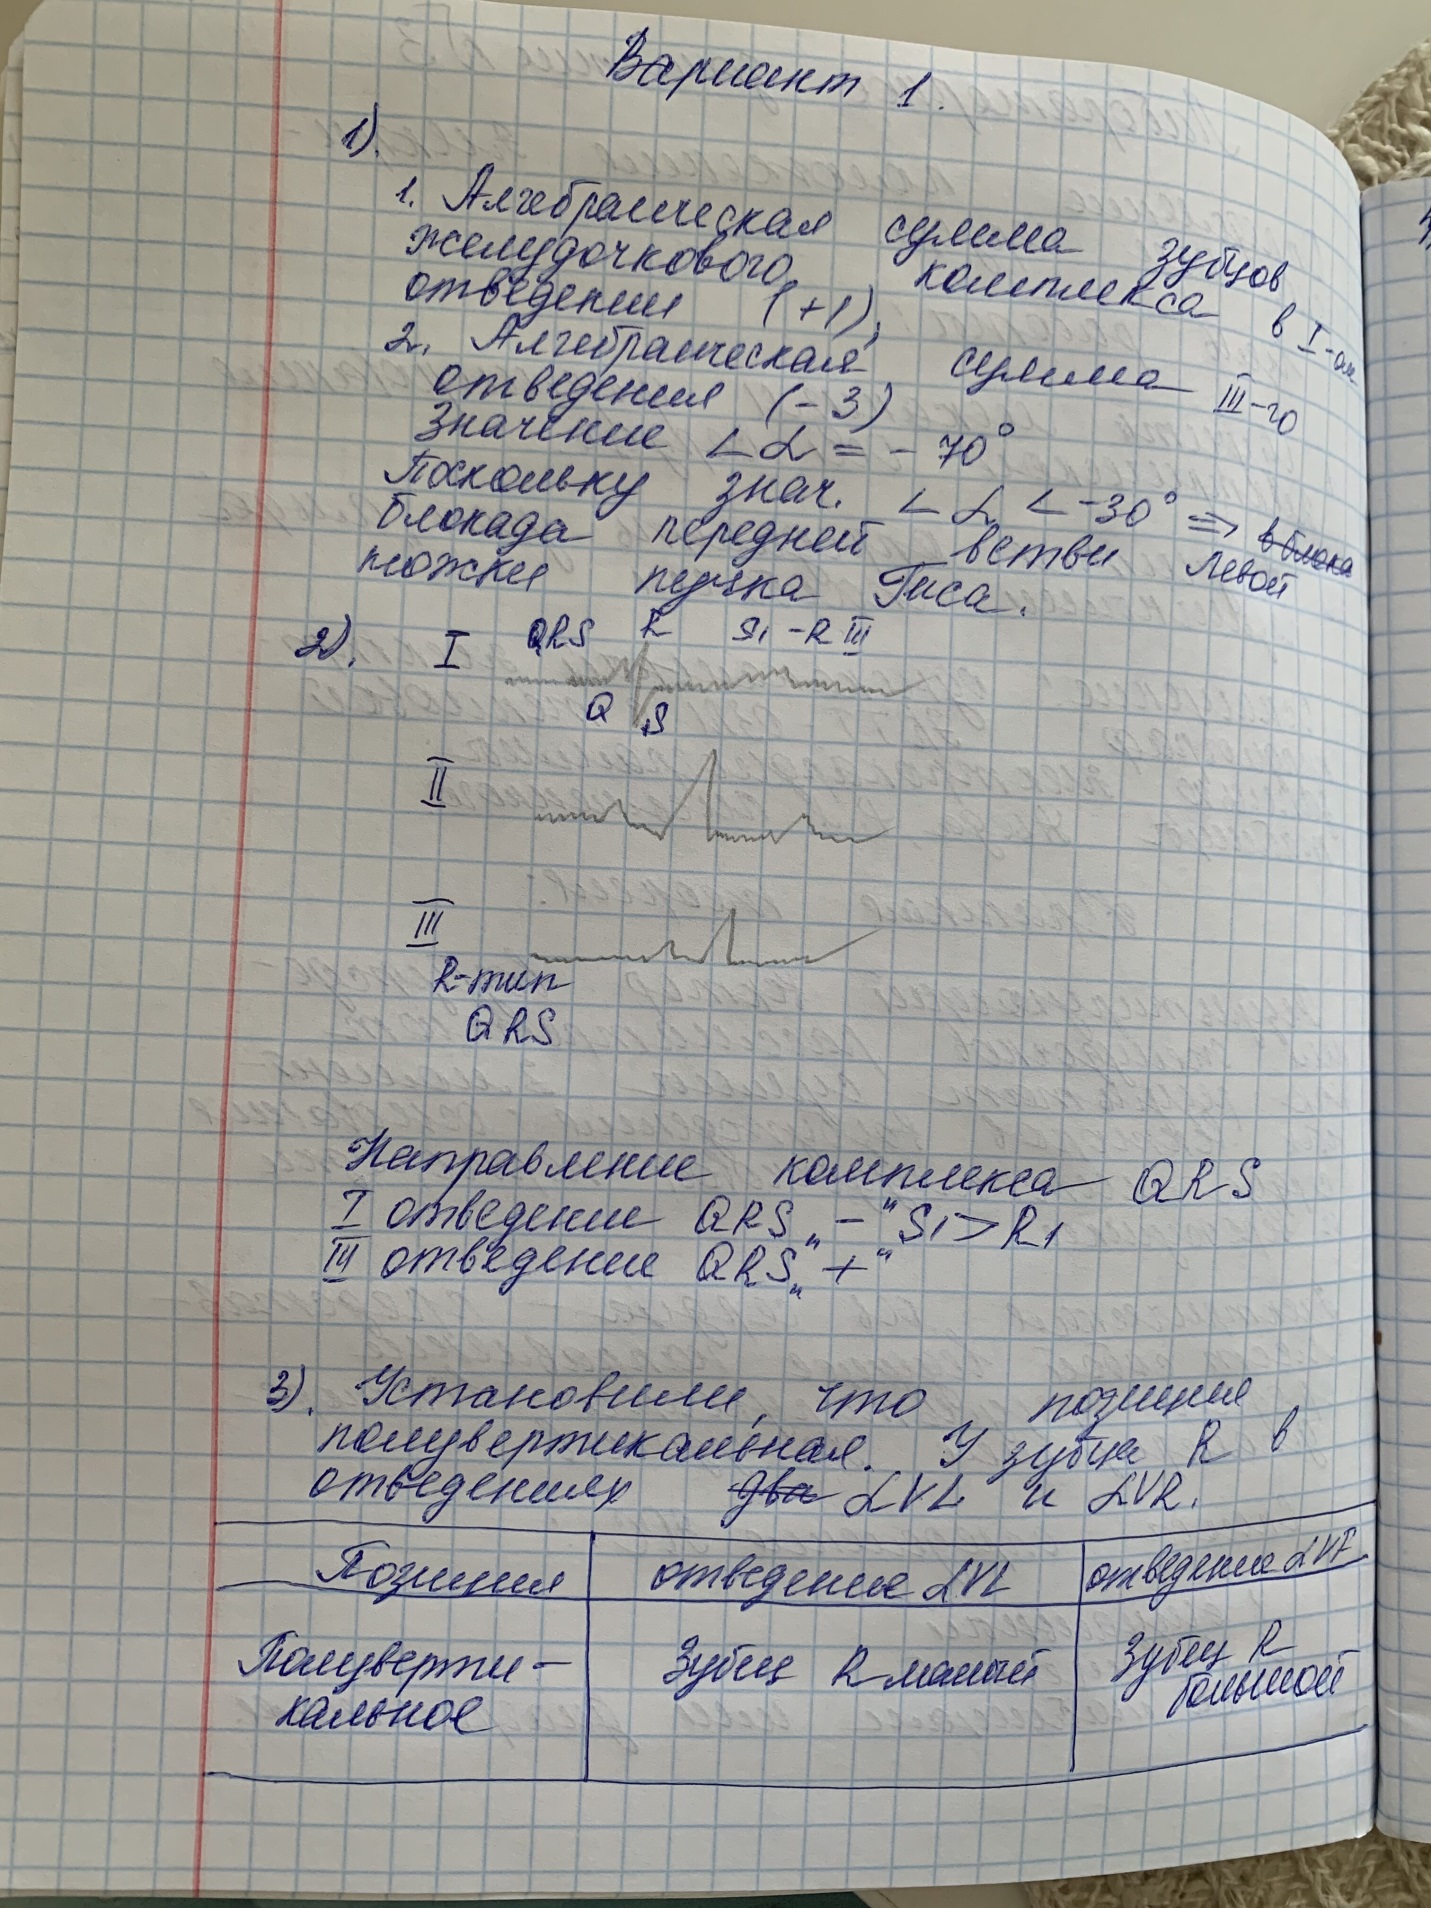 Вариант 1.
1).
1. Алгебраическая сумма зубцов
желудочкового комплекса в I-ом
отведении (+1),
2. Алгебраическая сумма III-го
отведения (-3)
Значение ∠α = -70°
Поскольку знач. ∠α < -30° ⇒
блокада передней ветви левой
ножки пучка Гиса.
2). I QRS R S1-R III
Q S
II
III
R-тип
QRS
Направление комплекса QRS
I отведение QRS „-“ S1>R1
III отведение QRS „+“
3). Установили, что позиция
полувертикальная. У зубца R в
отведениях два αVL и αVR.
Позиция отведение αVL отведение αVF
Полуверти- Зубец R малый Зубец R
кальное большой